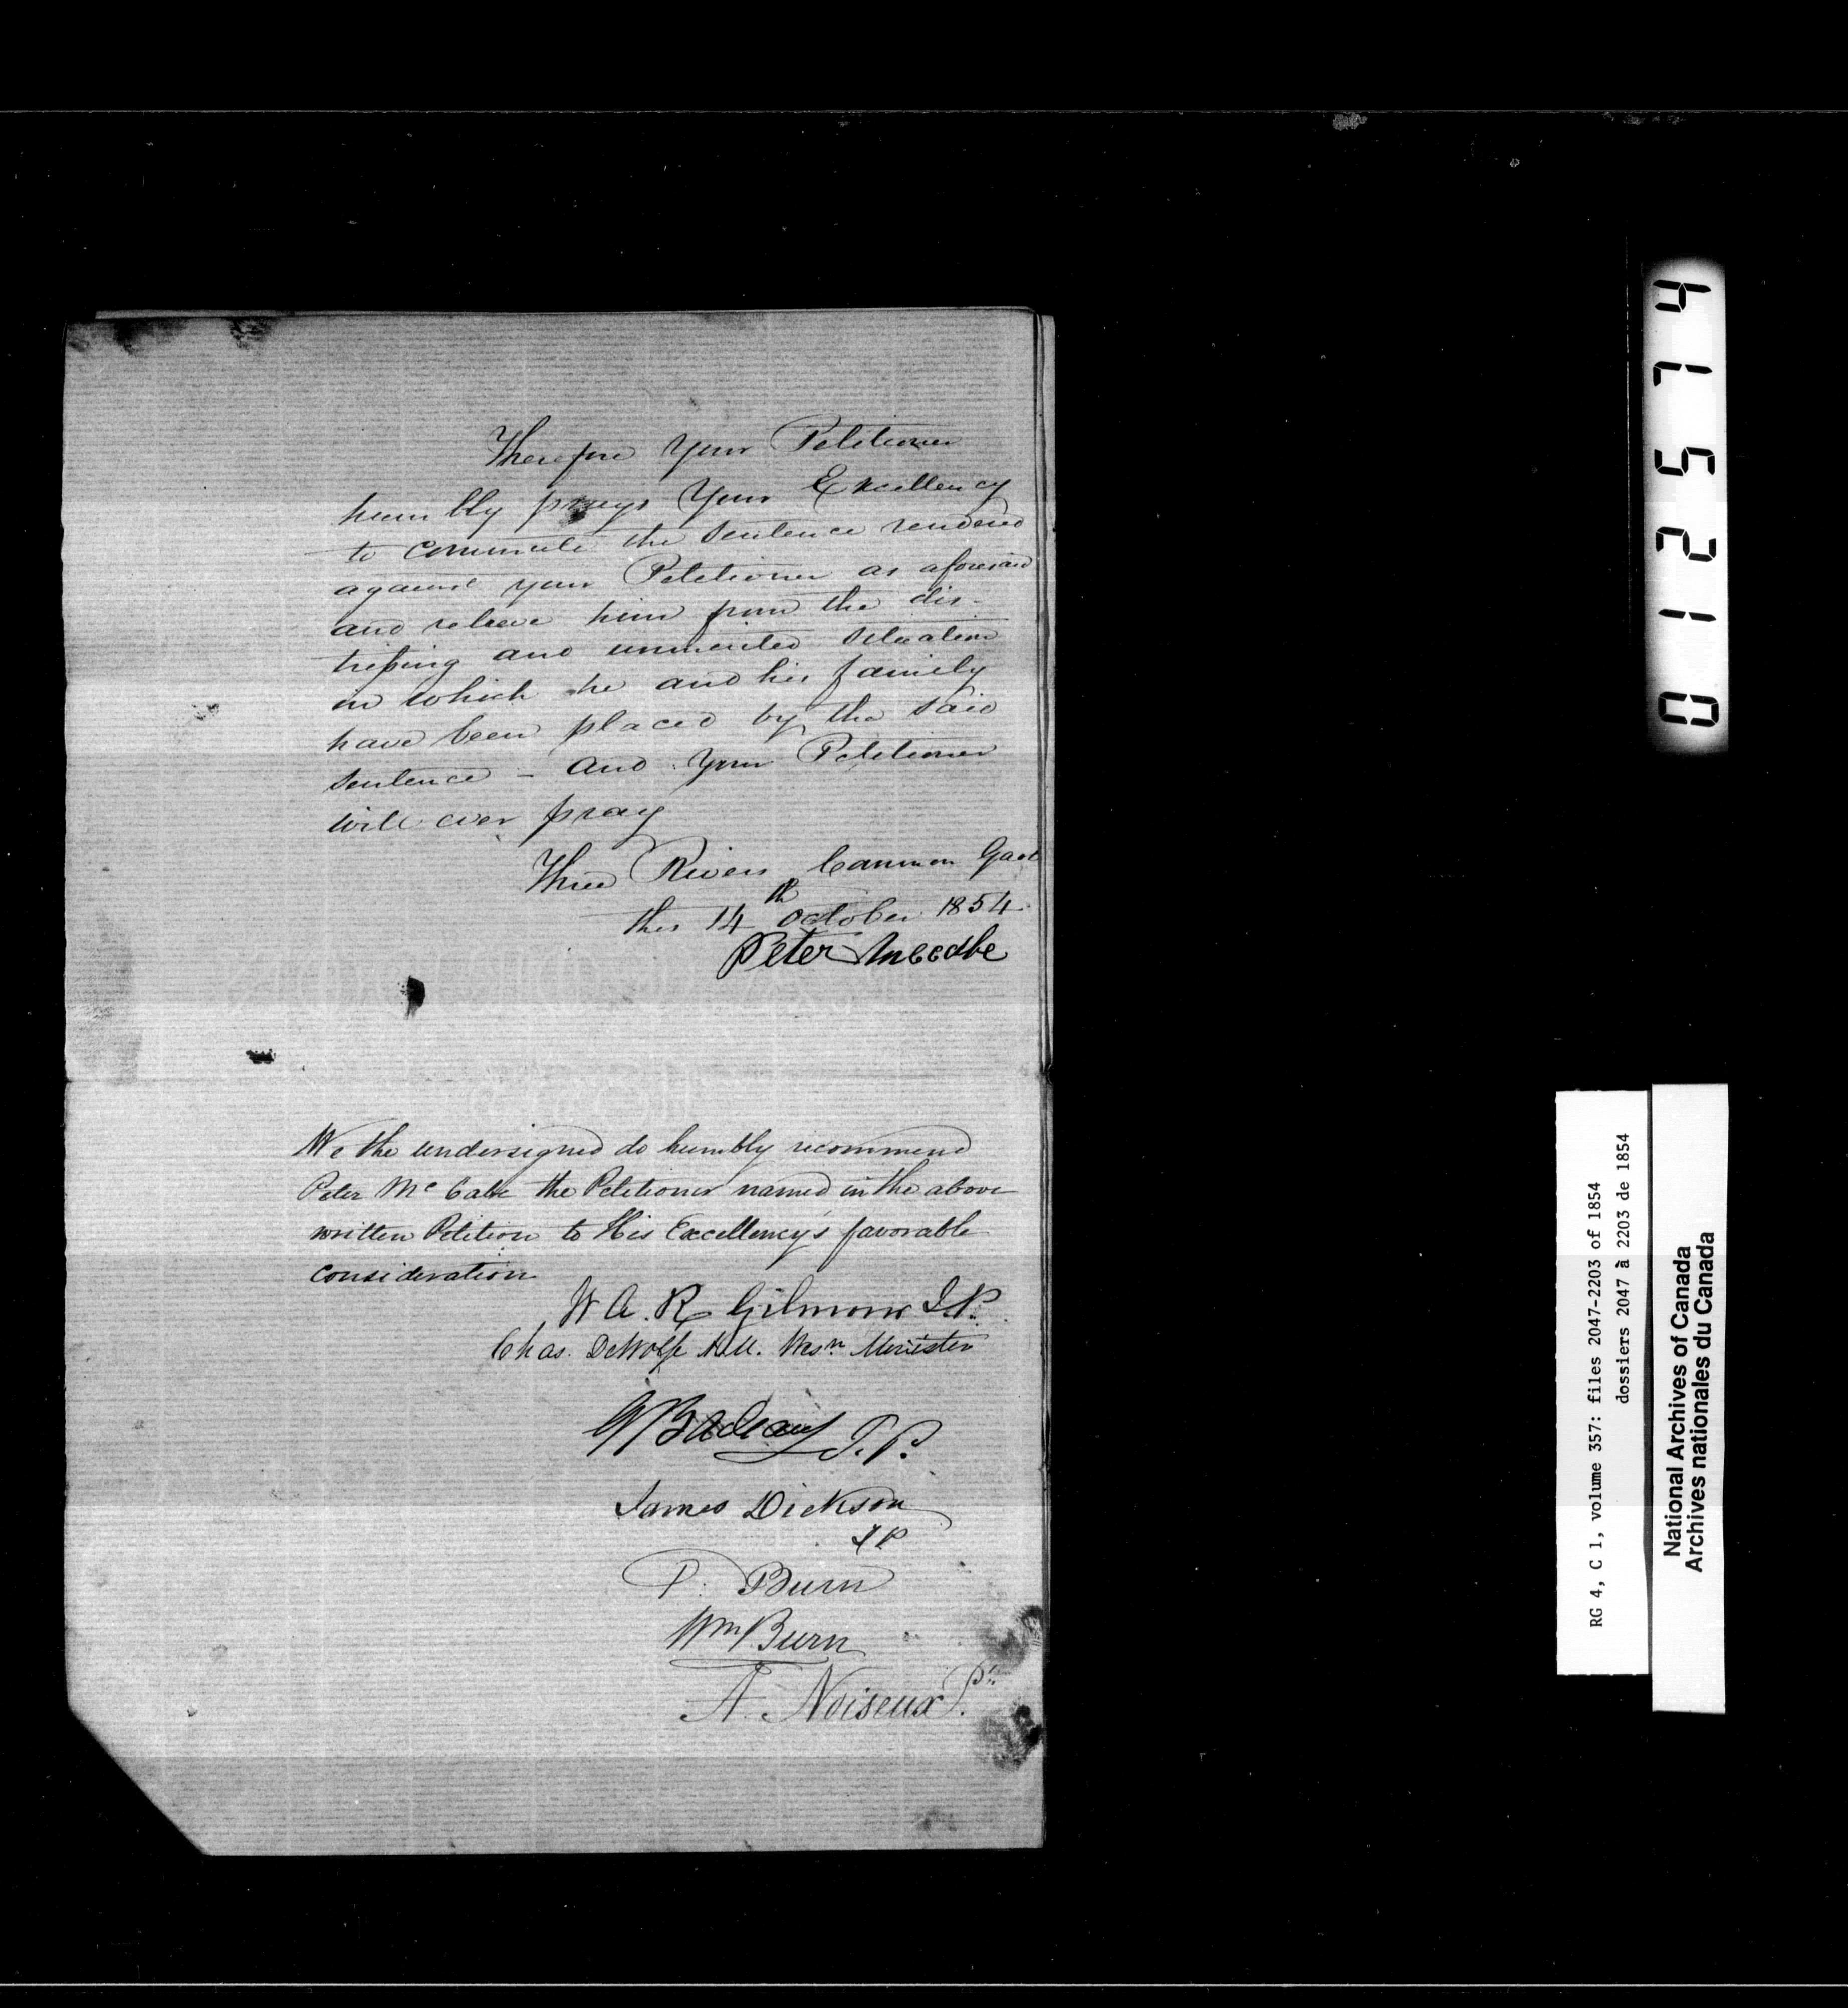 Therefore Your Petitioner
humbly prays Your Excellency
to commute the sentence rendered
against your Petitioner as aforesaid
and relieve him from the dis-
tressing and unmerited situation
in which he and his family
have been placed by the said
sentence – and your Petitioner
will ever pray
Three Rivers Common Gaol
this 14th October 1854
Peter Mccabe
We the undersigned do humbly recommend
Peter Mc Cabe the Petitioner named in the above
written Petition to His Excellency's favorable
consideration
W A. R Gilmour J.P.
Chas. DeWolfe Wesn. Minister
Badeaux J.P.
James Dickson
J P
P. Burn
Wm Burn
A. Noiseux Ptre.
012574
RG 4, C 1, volume 357: files 2047-2203 of 1854
dossiers 2047 à 2203 de 1854
National Archives of Canada
Archives nationales du Canada